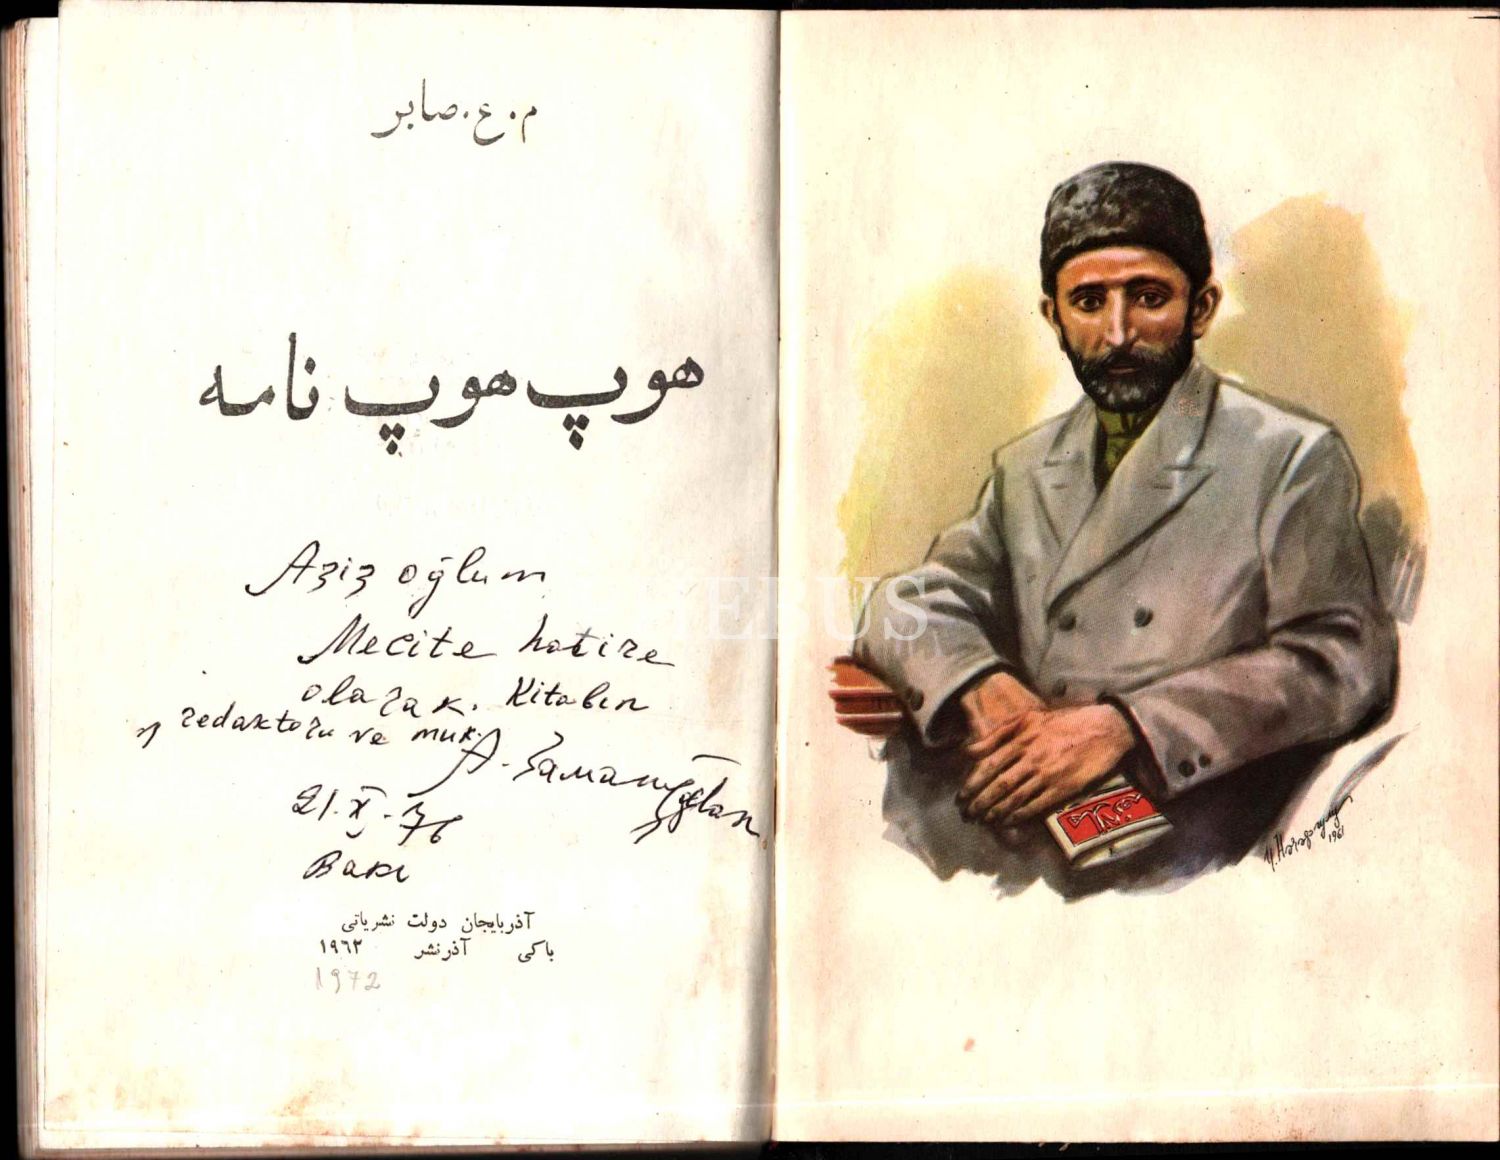 م.ع.صابر
هوپ هوپ نامه
Aziz oğlum
Mecite hatire
olarak. Kitabın
redaktoru ve muk.
A.
21. X - 76
Bakı
آذربایجان دولت نشریاتی
باکی آذرنشر ۱۹٦۲
1972
1961
EBUS